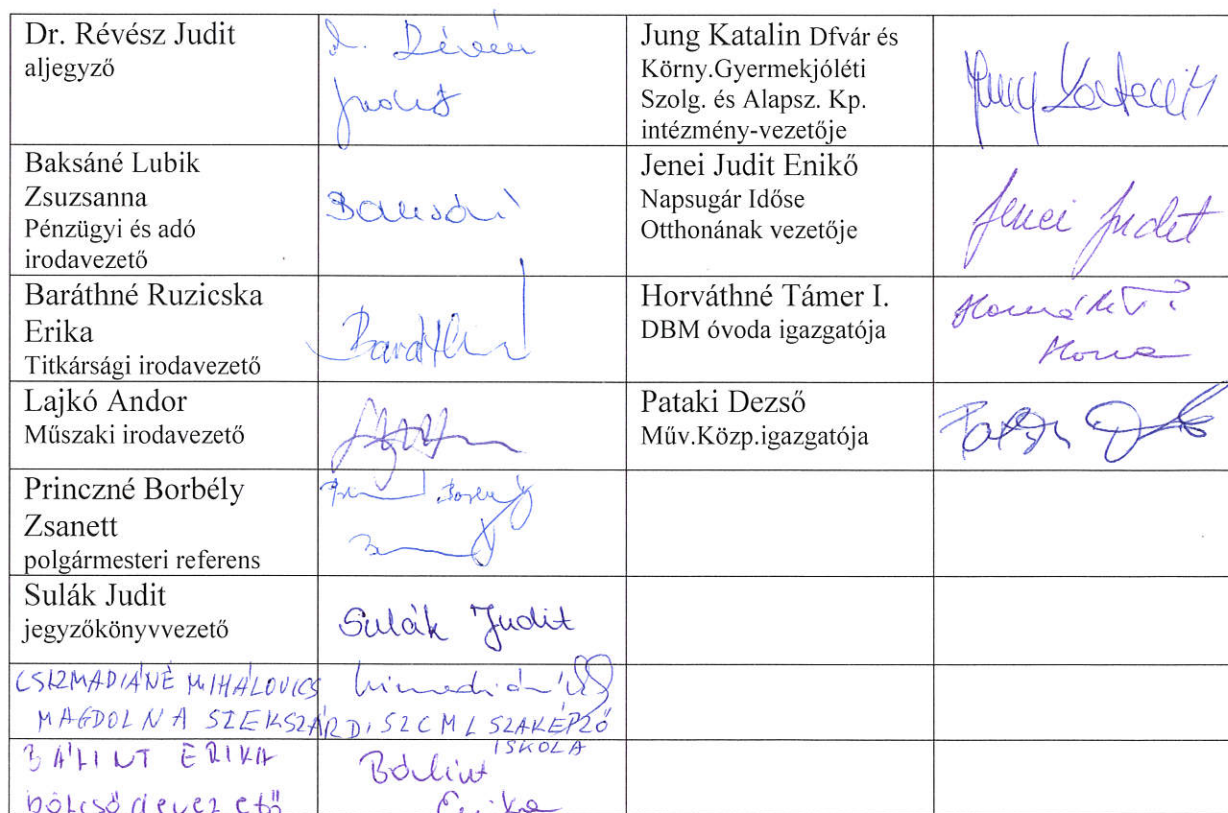 Dr. Révész Judit
aljegyző
Jung Katalin Dfvár és
Körny.Gyermekjóléti
Szolg. és Alapsz. Kp.
intézmény-vezetője
Baksáné Lubik
Zsuzsanna
Pénzügyi és adó
irodavezető
Jenei Judit Enikő
Napsugár Időse
Otthonának vezetője
Jenei Judit
Baráthné Ruzicska
Erika
Titkársági irodavezető
Horváthné Támer I.
DBM óvoda igazgatója
Lajkó Andor
Műszaki irodavezető
Pataki Dezső
Műv.Közp.igazgatója
Princzné Borbély
Zsanett
polgármesteri referens
Sulák Judit
jegyzőkönyvvezető
Sulák Judit
CSIZMADIÁNÉ MIHÁLOVICS
MAGDOLNA SZEKSZÁRDI SZC ML SZAKÉPZŐ
ISKOLA
BÁLINT ERIKA
bölcsődevezető
Bálint
Erika